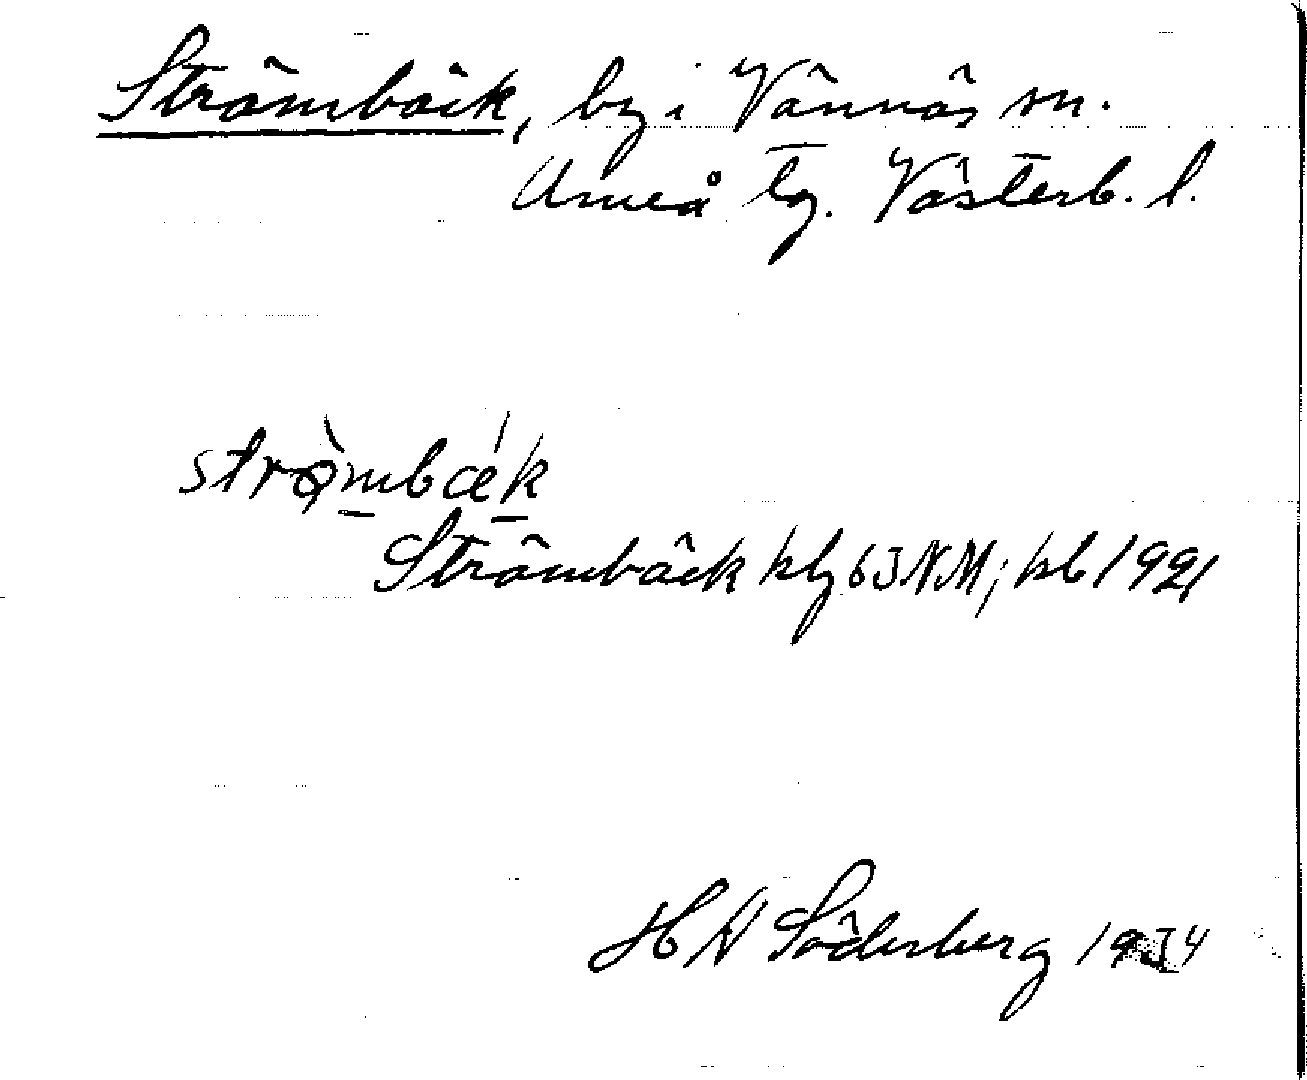 Strömbäck, by i Vännäs sn.
Umeå tg. Västerb. l.
strø̀mbǽk
Strömbäck kbg 63 NM; kb 1921
H W Söderberg 1934